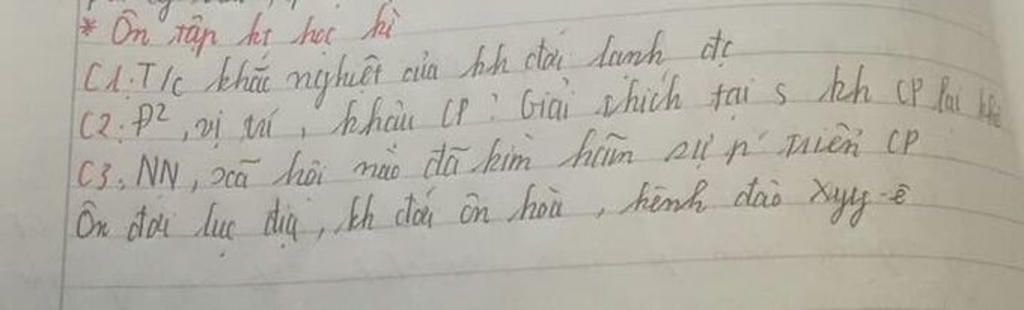 * Ôn tập kt học kì
C1. T/c khắc nghiệt của kh đới lạnh đc
C2. P², vị trí, khâu CP: Giải thích tại s kh CP lại
C3. NN, xã hội nào đã kìm hãm sự p' triển CP
Ôn đới lục địa, kh đới ôn hoà, kênh đào Xuy-ê